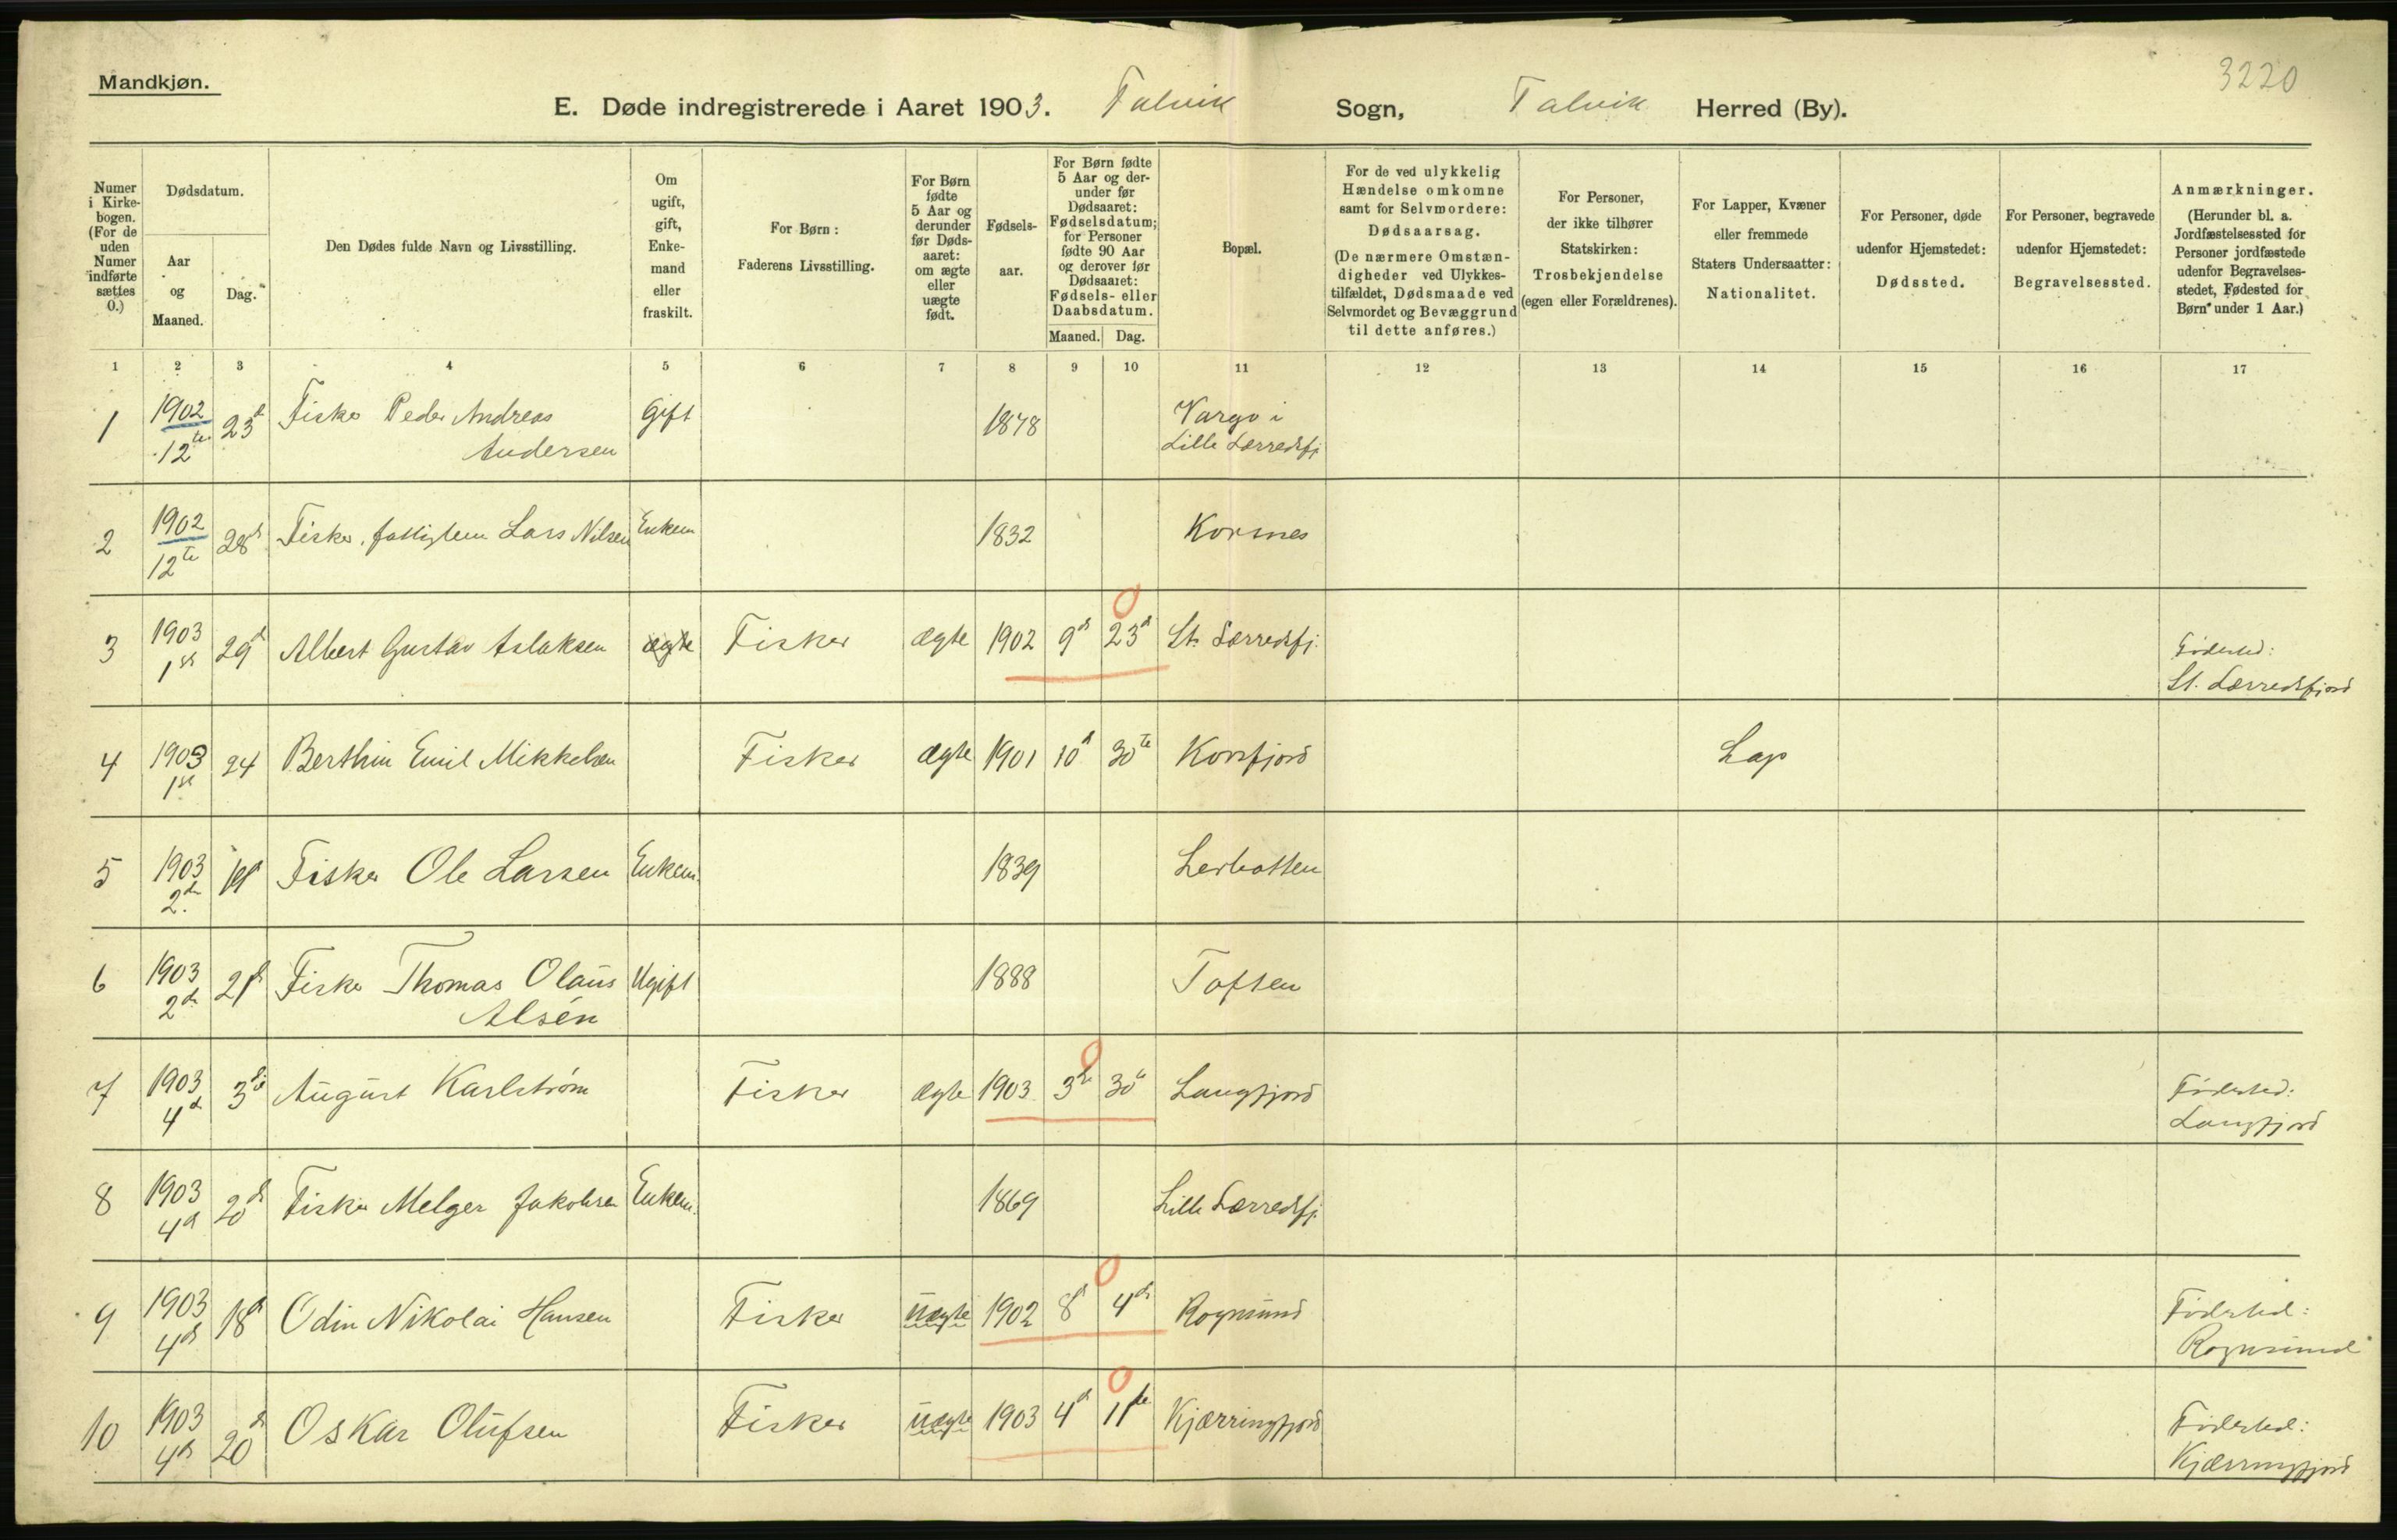 Mandkjøn.
3220
E. Døde indregistrerede i Aaret 1903. Talvik Sogn, Talvik Herred (By).
Numer i Kirke-bogen. (For de uden Numer indførte sættes 0.)
Dødsdatum.
Aar og Maaned.
Dag.
Den Dødes fulde Navn og Livsstilling.
Om ugift, gift, Enke-mand eller fraskilt.
For Børn: Faderens Livsstilling.
For Børn fødte 5 Aar og derunder før Døds-aaret: om ægte eller uægte født.
Fødsels-aar.
For Børn fødte 5 Aar og der-under før Dødsaaret: Fødselsdatum; for Personer fødte 90 Aar og derover før Dødsaaret: Fødsels- eller Daabsdatum.
Maaned. Dag.
Bopæl.
For de ved ulykkelig Hændelse omkomne samt for Selvmordere: Dødsaarsag. (De nærmere Omstæn-digheder ved Ulykkes-tilfældet, Dødsmaade ved Selvmordet og Bevæggrund til dette anføres.)
For Personer, der ikke tilhører Statskirken: Trosbekjendelse (egen eller Forældrenes).
For Lapper, Kvæner eller fremmede Staters Undersaatter: Nationalitet.
For Personer, døde udenfor Hjemstedet: Dødssted.
For Personer, begravede udenfor Hjemstedet: Begravelsessted.
Anmærkninger. (Herunder bl. a. Jordfæstelsessted for Personer jordfæstede udenfor Begravelses-stedet, Fødested for Børn under 1 Aar.)
1 2 3 4 5 6 7 8 9 10 11 12 13 14 15 16 17
1 1902 12te 23d Fisker Peder Andreas Andersen Gift 1878 Vargo i Lille Lerredsfj.
2 1902 12te 28d Fisker, fattiglem Lars Nilsen Enkem 1832 Korsnes
3 1903 1st 29d Albert Gustav Aslaksen ægte Fisker ægte 1902 9d 23d St. Lerredsfj. Fødested: St. Lerredsfjord
4 1903 1st 24 Berthin Emil Mikkelsen Fisker ægte 1901 10d 30te Korsfjord Lap
5 1903 2den Fisker Ole Larsen Enkem. 1839 Lerbotten
6 1903 2den 21d Fisker Thomas Olaus Alsén Ugift 1888 Toften
7 1903 4d 3die August Karlstrøm Fisker ægte 1903 3d 30te Langfjord Fødested: Langfjord
8 1903 4d 20d Fisker Melger Jakobsen Enkem. 1869 Lille Lerredsfj.
9 1903 4d 18d Odin Nikolai Hansen Fisker uægte 1902 8d 4de Rognsund Fødested: Rognsund
10 1903 4d 20d Oskar Olufsen Fisker uægte 1903 4d 11te Kjærringfjord Fødested: Kjærringfjord